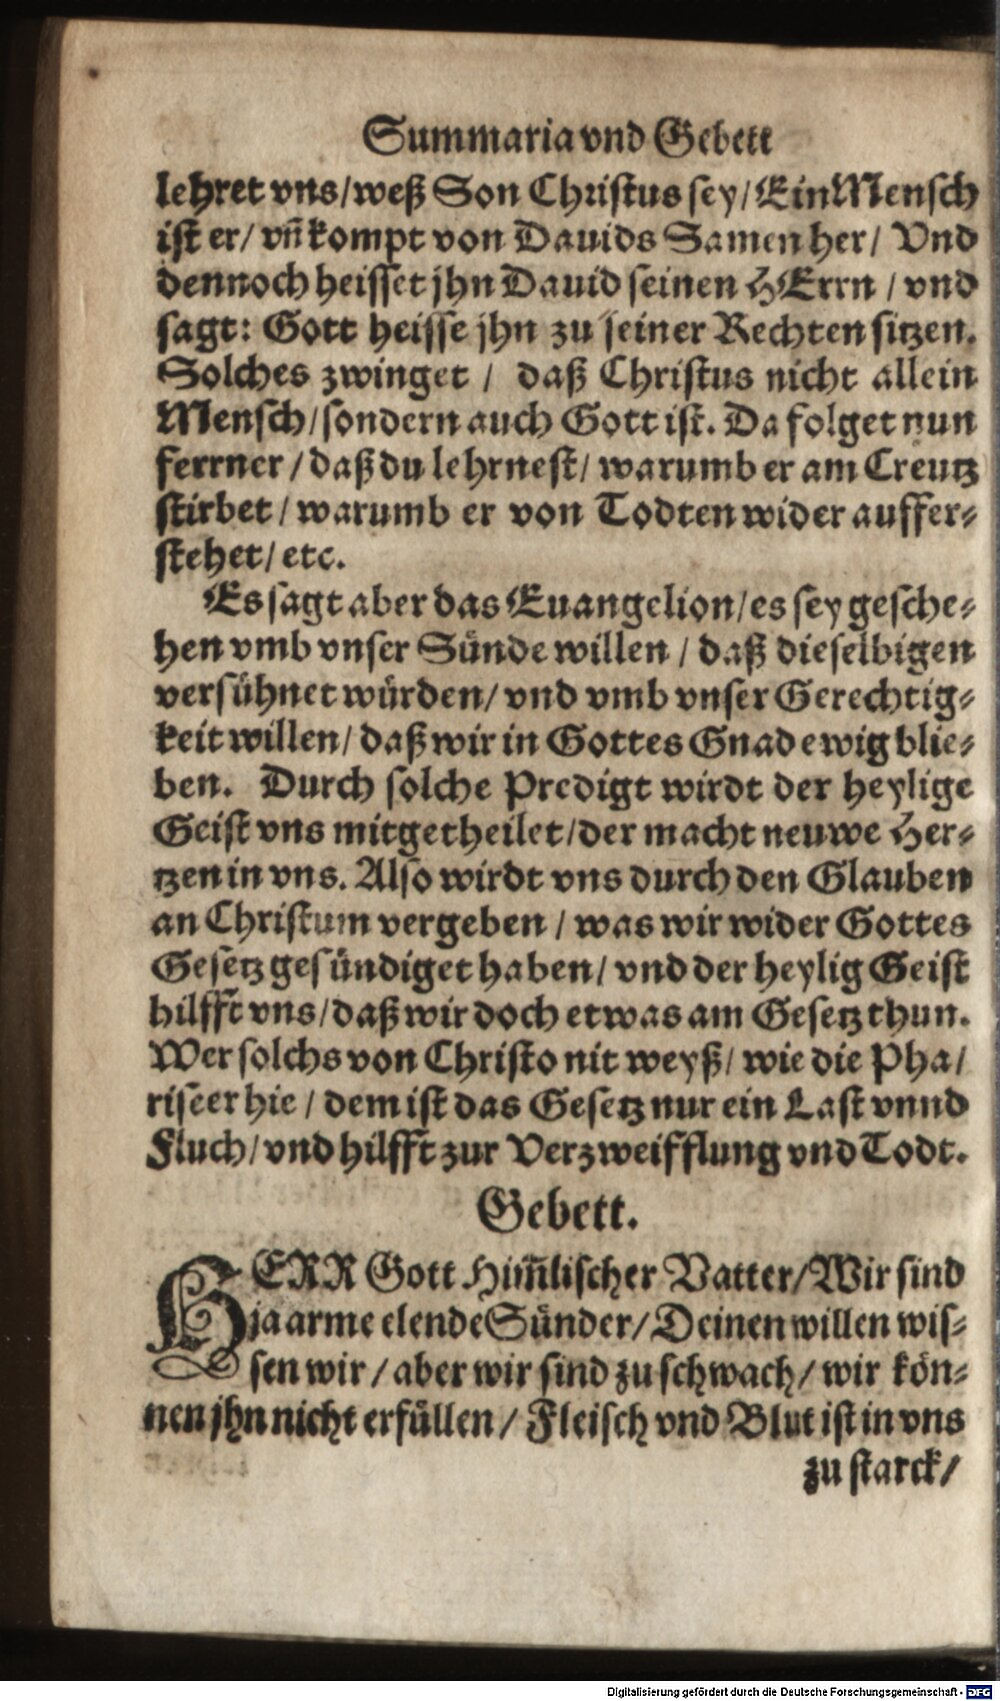 Summaria vnd Gebett
lehret vns/weß Son Christus sey/Ein Mensch
ist er/ vñ kompt von Dauids Samen her/ Vnd
dennoch heisset jhn Dauid seinen HErrn / vnd
sagt: Gott heisse jhn zu seiner Rechten sitzen.
Solches zwinget / daß Christus nicht allein
Mensch/sondern auch Gott ist. Da folget nun
ferrner/daß du lehrnest/ warumb er am Creutz
stirbet/warumb er von Todten wider auffer-
stehet/etc.
Es sagt aber das Euangelion/es sey gesche-
hen vmb vnser Sünde willen / daß dieselbigen
versühnet würden/ vnd vmb vnser Gerechtig-
keit willen/ daß wir in Gottes Gnad ewig blie-
ben. Durch solche Predigt wirdt der heylige
Geist vns mitgetheilet/der macht neuwe Her-
tzen in vns. Also wirdt vns durch den Glauben
an Christum vergeben / was wir wider Gottes
Gesetz gesündiget haben/ vnd der heylig Geist
hilfft vns/daß wir doch etwas am Gesetz thun.
Wer solchs von Christo nit weyß/ wie die Pha/
riseer hie / dem ist das Gesetz nur ein Last vnnd
Fluch/vnd hilfft zur Verzweifflung vnd Todt.
Gebett.
HERR Gott Him̃lischer Vatter/Wir sind
ja arme elende Sünder/Deinen willen wis-
sen wir/aber wir sind zu schwach/ wir kön-
nen jhn nicht erfüllen/ Fleisch vnd Blut ist in vns
zu starck/
Digitalisierung gefördert durch die Deutsche Forschungsgemeinschaft - DFG